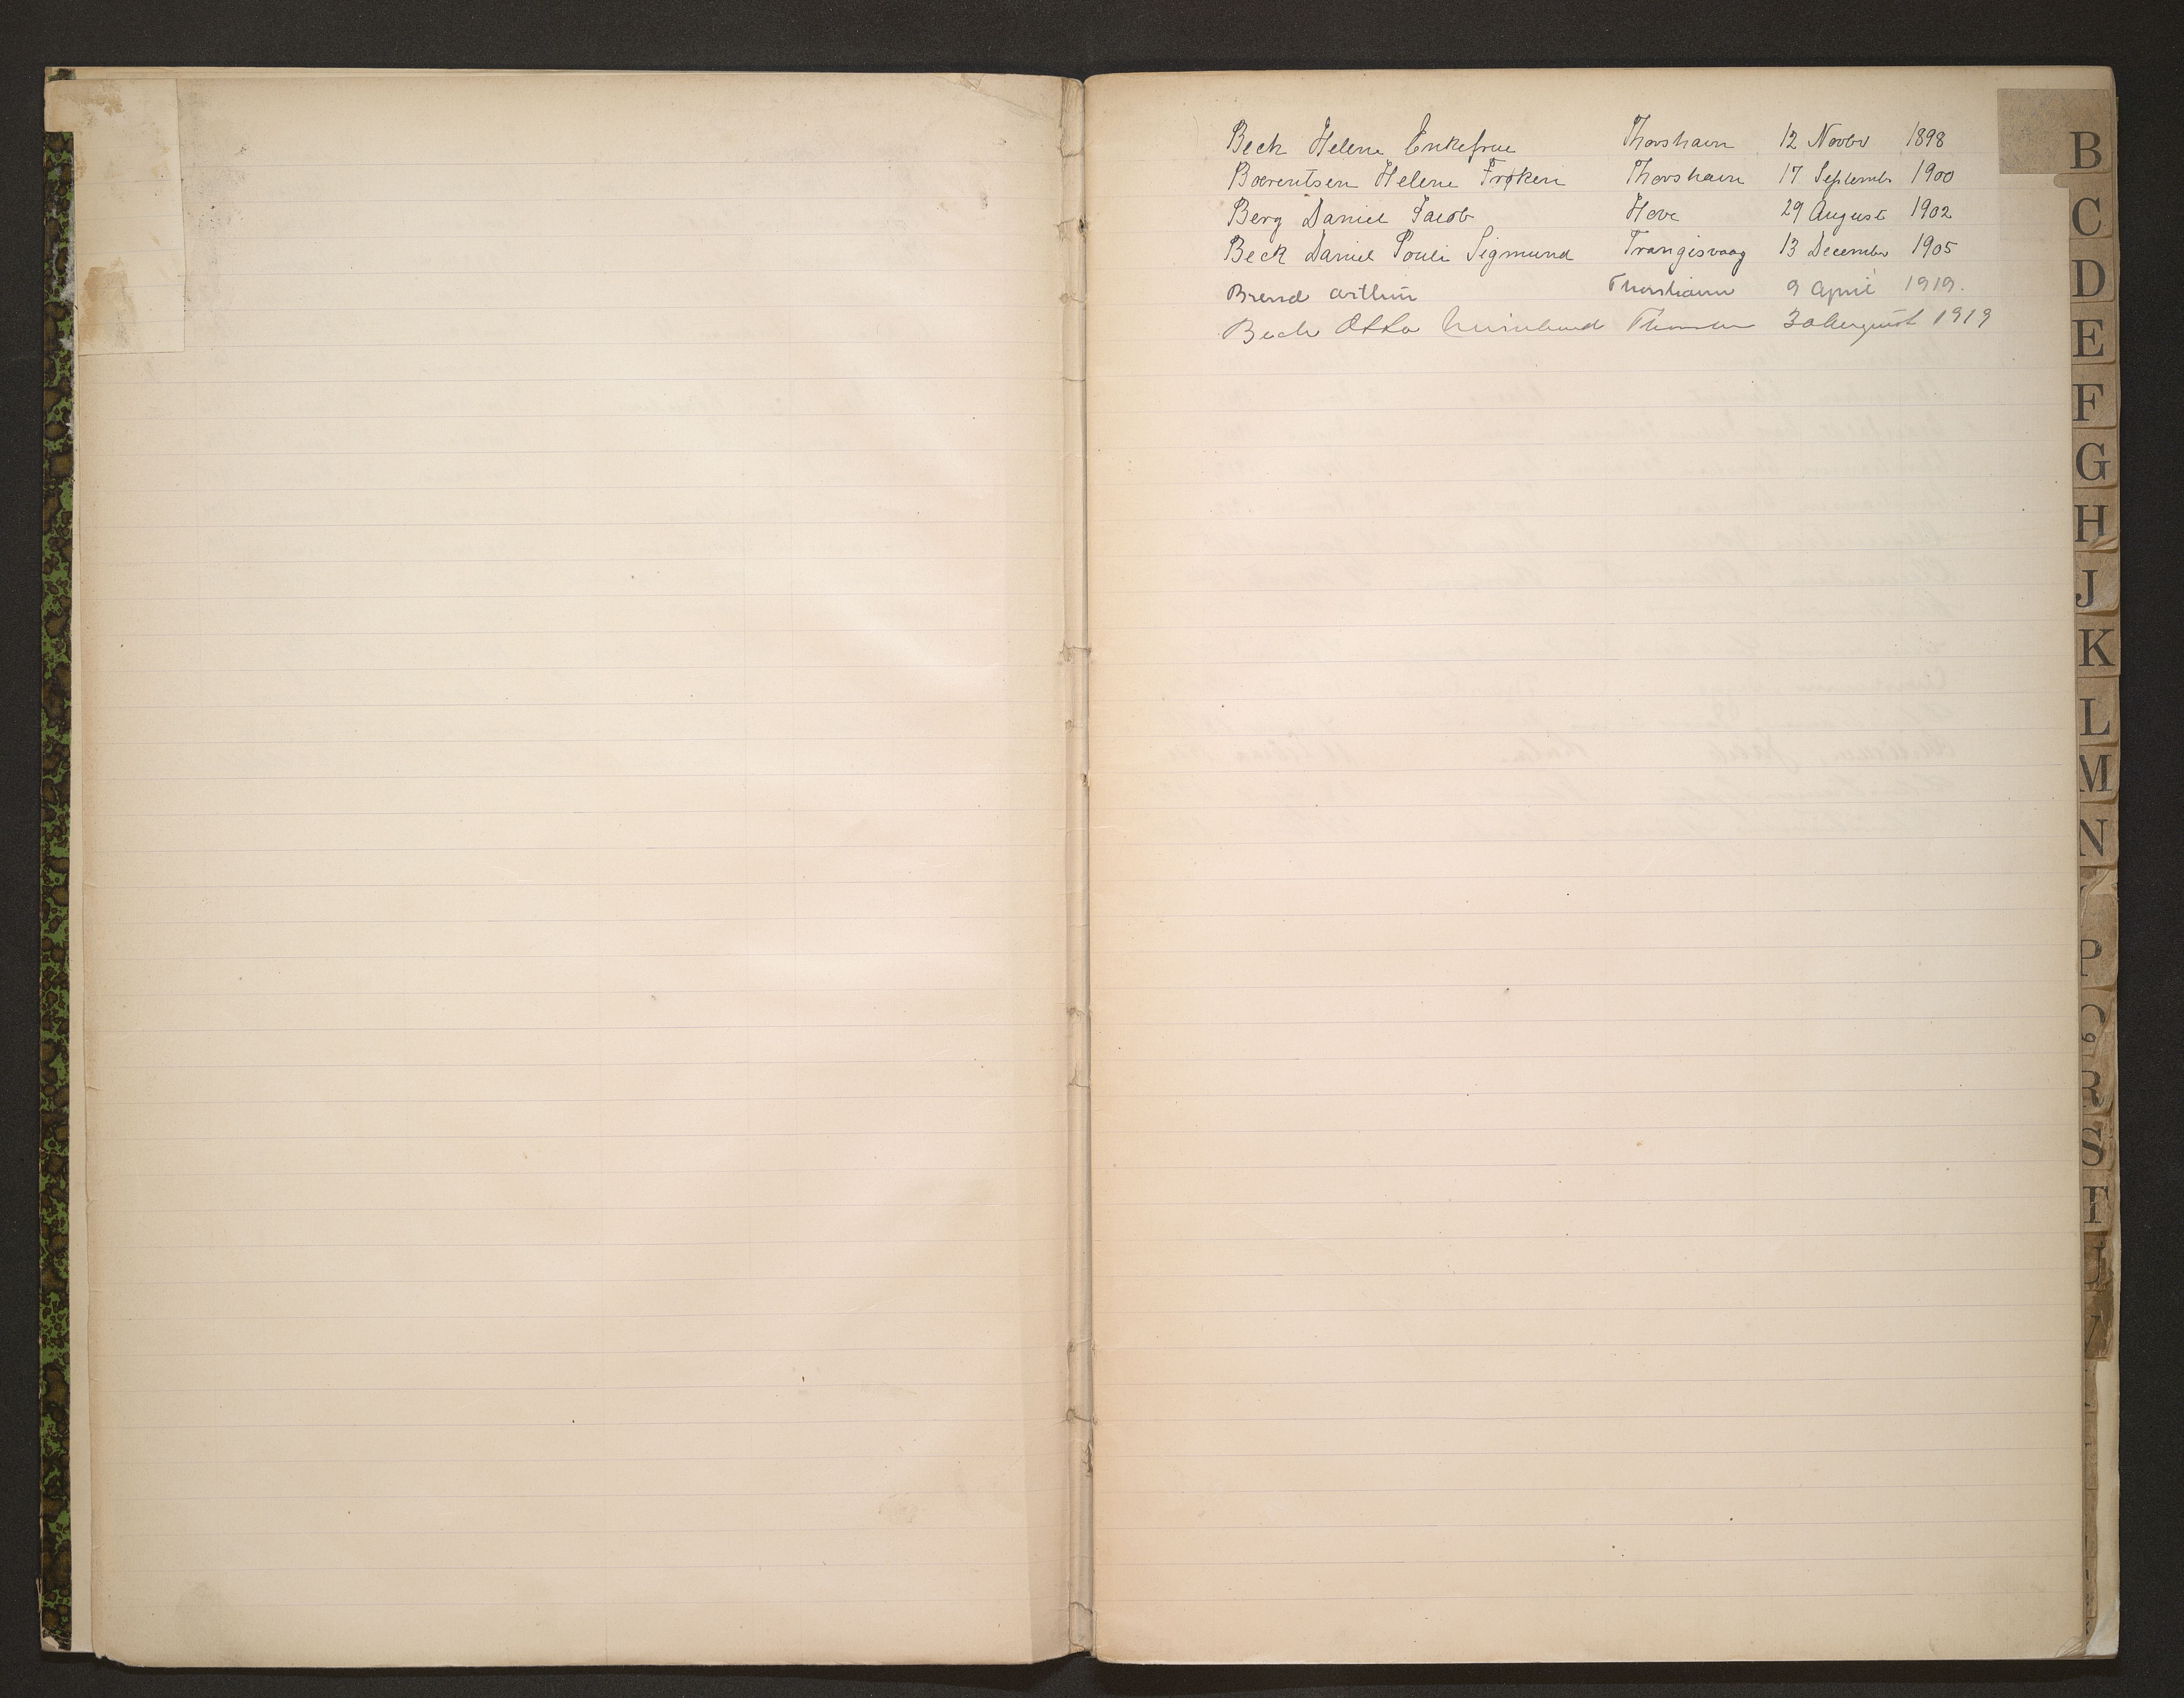 Beck Helene Enkefrue Thorshavn 12 Novbr 1898
Bærentsen Helene Frøken Thorshavn 17 Septembr 1900
Berg Daniel Jacob Hove 29 August 1902
Beck Daniel Pouli Sigmund Trangisvaag 13 December 1905
Brend Arthur Thorshavn 9 April 1919.
Beck Otto Thorshavn 30 August 1919
B
C
D
E
F
G
H
J
K
L
M
N
P
Q
R
S
T
U
V